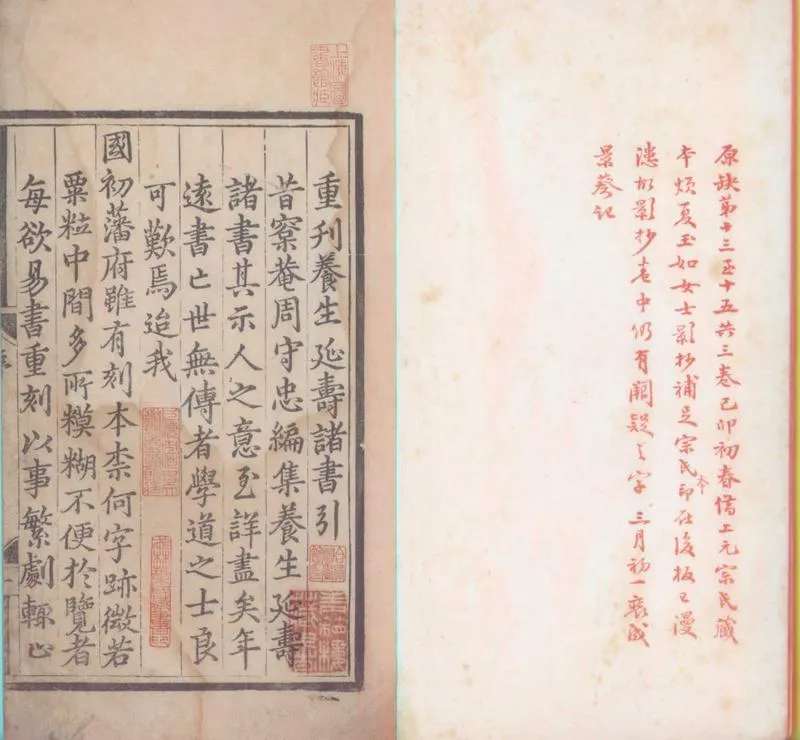 原缺第十三至十五共三卷己卯初春借上元宗氏藏
本煩夏玉如女士影抄補足宗氏本印在後板已漫
漶故影抄卷中仍有闕疑之字 三月初一裝成
景葵記
重刋養生延壽諸書引
昔寀菴周守忠編集養生延壽
諸書其示人之意至詳盡矣年
遠書亡世無傳者學道之士良
可歎焉迨我
國初藩府雖有刻本柰何字跡微若
粟粒中間多所糢糊不便於覽者
每欲易書重刻以事繁劇輒止